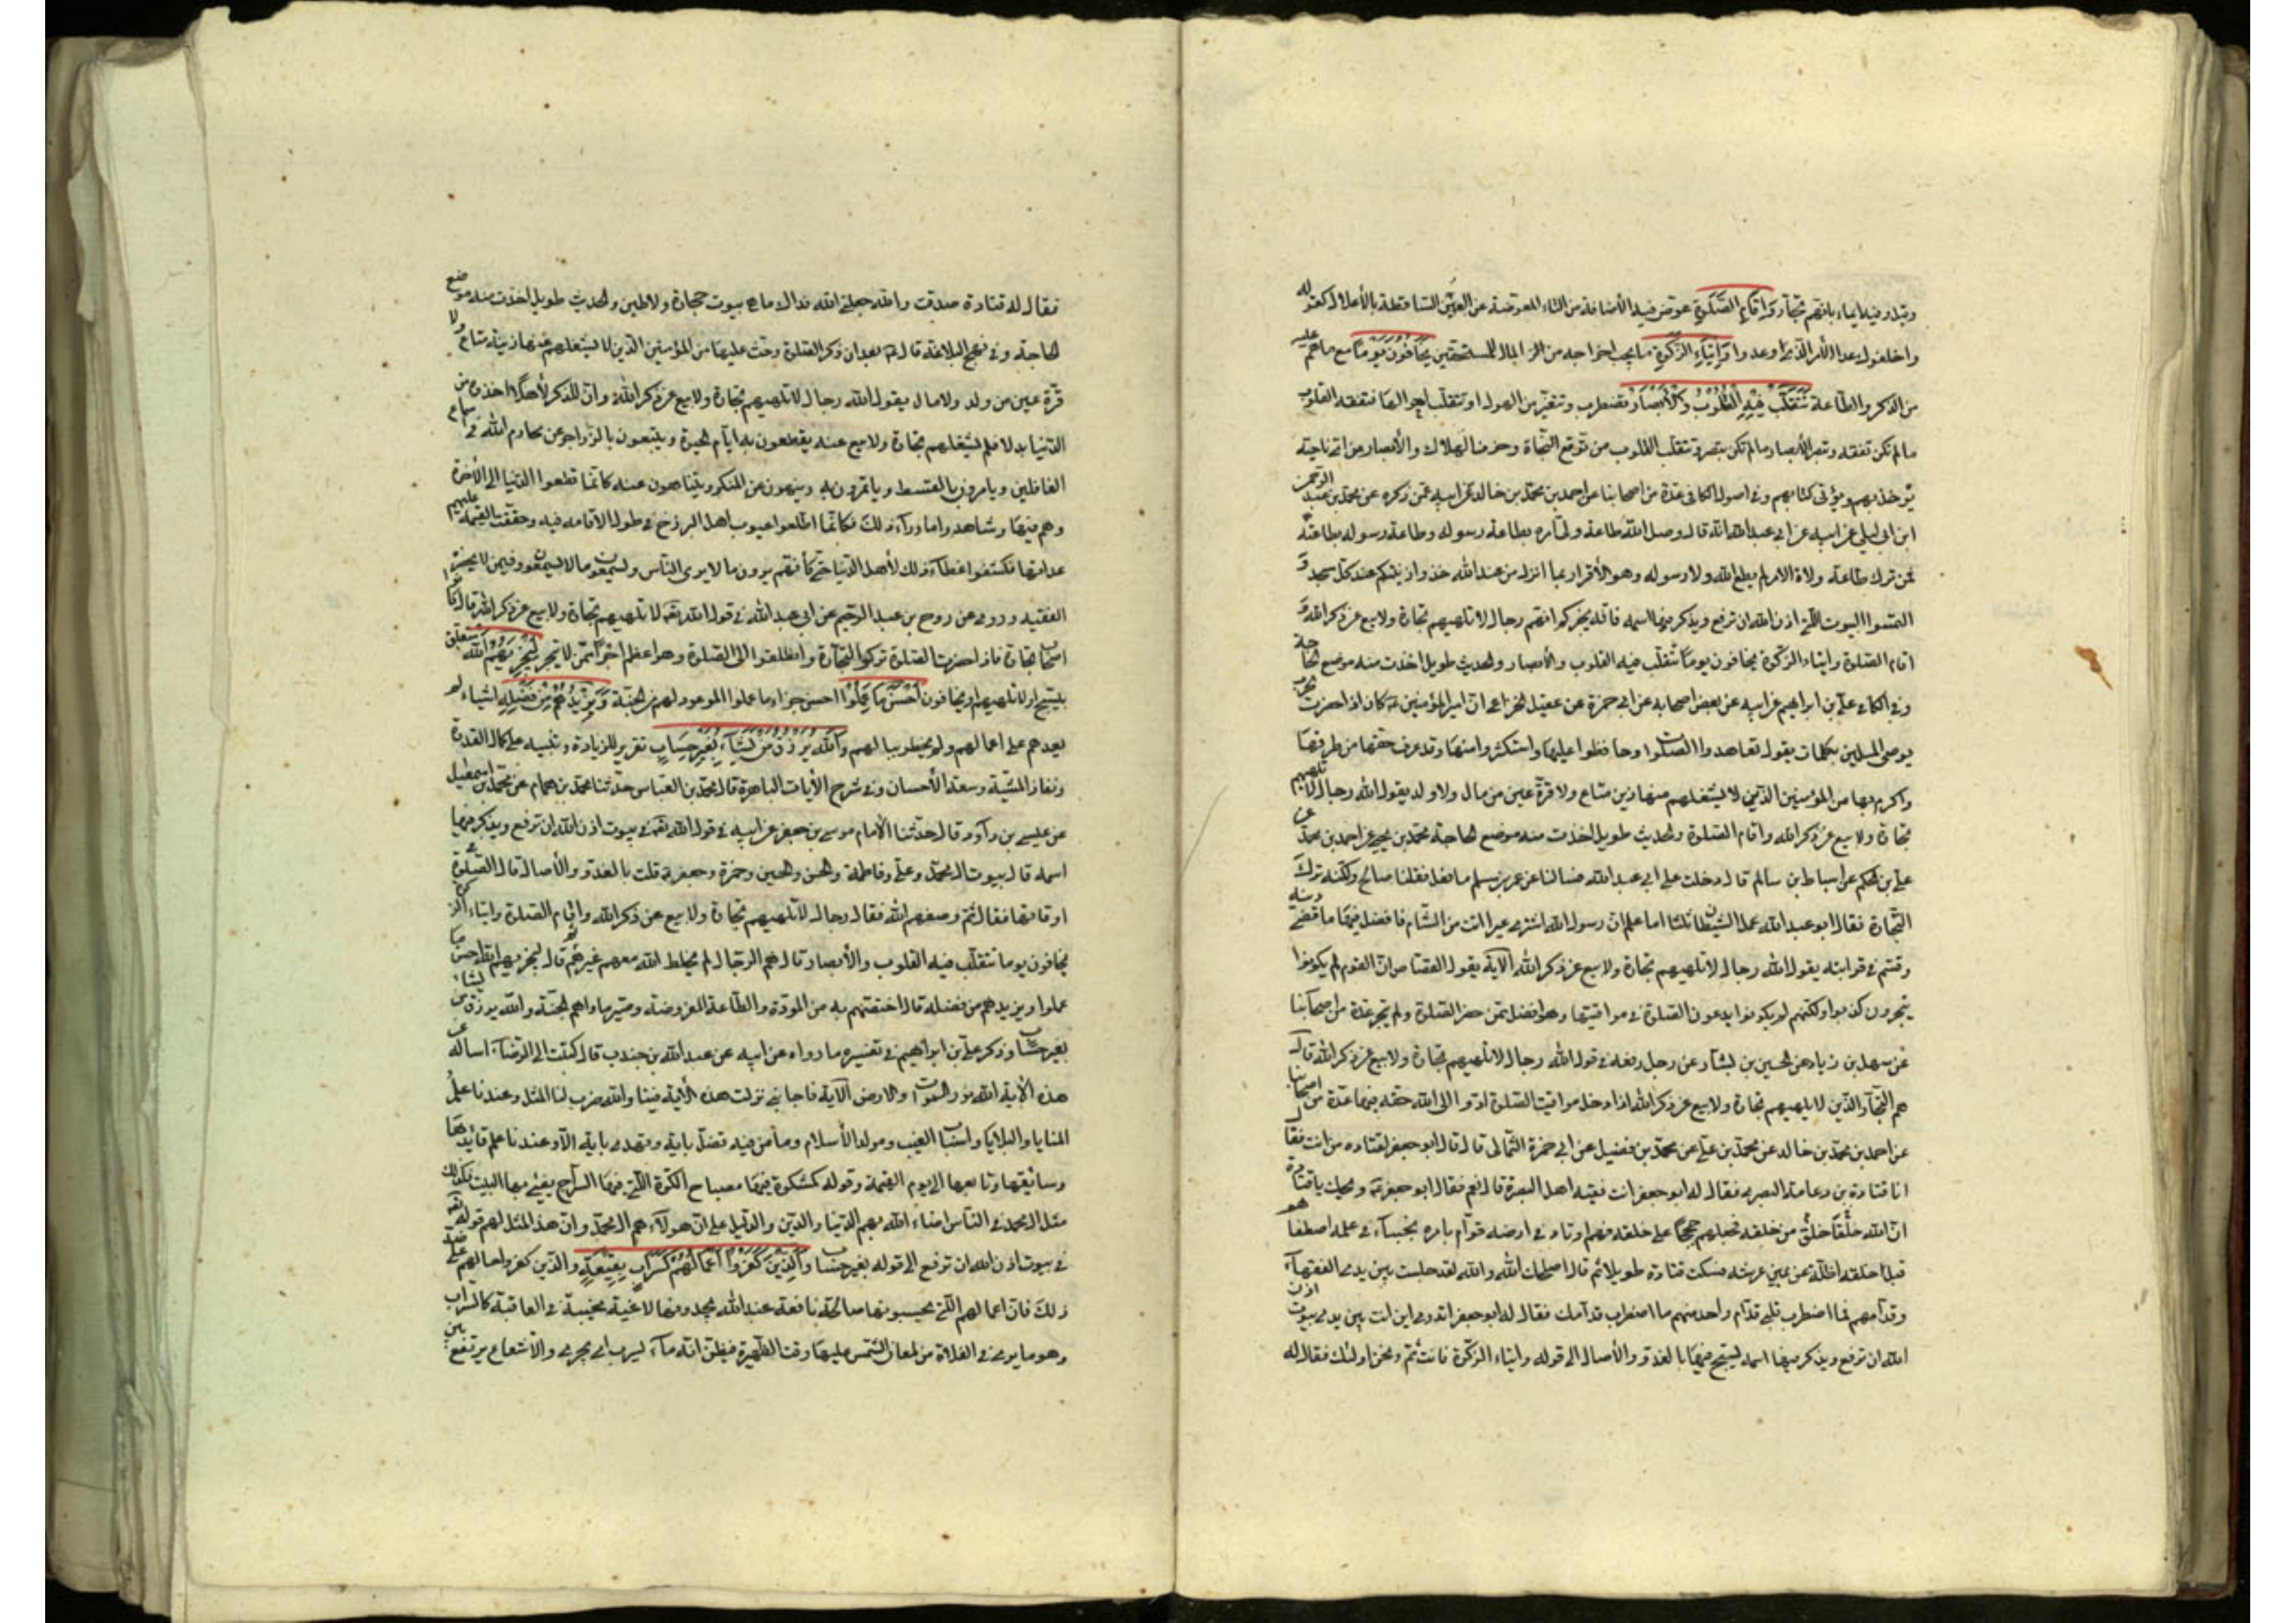 وفيه ايماء بانهم تجار وَاِقَامِ الصَّلٰوةِ عوّض فيه الأضافة من التاء المعوضة عن العين الساقطة بالأعلال كقوله
واخلفوك عدا الأمر الذى وعدوا وَاِيتَاءِ الزَّكٰوةِ ما يجب اخراجه من المال للمستحقين يَخَافُونَ يَوْمًا مع ما هم عليه
من الذكر والطاعة تَتَقَلَّبُ فِيهِ الْقُلُوبُ وَالْأَبْصَارُ تضطرب وتتغير من الهول او تتقلب احوالها فتفقه القلوب
ما لم تكن تفقه وتبصر الأبصار ما لم تكن تبصر او تتقلب القلوب من توقع النجاة وخوف الهلاك والأبصار من اى ناحية
يؤخذ بهم ويؤتى كتابهم وفى اصول الكافى عدة من اصحابنا عن احمد بن محمد بن خالد عن ابيه عمن ذكره عن محمد بن عبد الرحمن
ابن ابى ليلى عن ابيه عن ابى عبد الله انه قال وصل الله طاعة ولى امره بطاعة رسوله وطاعة رسوله بطاعته
فمن ترك طاعة ولاة الامر لم يطع الله ولا رسوله وهو الأقرار بما انزل من عند الله خذوا زينتكم عند كل مسجد و
التمسوا البيوت التى اذن الله ان ترفع ويذكر فيها اسمه فانه يخبركم انهم رجال لا تلهيهم تجارة ولا بيع عن ذكر الله و
اقام الصلوة وايتاء الزكوة يخافون يوما تتقلب فيه القلوب والأبصار والحديث طويل اخذت منه موضع الحاجة
وفى الكافى على بن ابراهيم عن ابيه عن بعض اصحابه عن ابى حمزة عن عقيل الخزاعى ان امير المؤمنين ع كان اذا حضر الحرب
يوصى المسلمين بكلمات يقول تعاهدوا الصلوة وحافظوا عليها واستكثروا منها وقد عرف حقها من طرقها
واكرم بها من المؤمنين الذين لا يشغلهم عنها زين متاع ولا قرة عين من مال ولا ولد يقول الله رجال لا تلهيهم
تجارة ولا بيع عن ذكر الله واقام الصلوة والحديث طويل اخذت منه موضع الحاجة محمد بن يحيى عن احمد بن محمد عن
على بن الحكم عن اسباط بن سالم قال دخلت على ابى عبد الله فسالنا عن عمر بن مسلم ما فعل فقلنا صالح ولكنه ترك
التجارة فقال ابو عبد الله عمل الشيطان ثلثا اما علم ان رسول الله اشترى عيرا اتت من الشام فاستفضل فيها ما قضى دينه
وقسم فى قرابته يقول الله رجال لا تلهيهم تجارة ولا بيع عن ذكر الله الآية يقول القصاص ان القوم لم يكونوا
يتجرون كذبوا ولكنهم لم يكونوا يدعون الصلوة فى مواقيتها وهو افضل ممن حضر الصلوة ولم يتجر عدة من اصحابنا
عن سهل بن زياد عن الحسين بن بشار عن رجل رفعه فى قول الله رجال لا تلهيهم تجارة ولا بيع عن ذكر الله قال
هم التجار الذين لا تلهيهم تجارة ولا بيع عن ذكر الله اذا دخل مواقيت الصلوة ادوا الى الله حقه فيها عدة من اصحابنا
عن احمد بن محمد بن خالد عن محمد بن على عن محمد بن فضيل عن ابى حمزة الثمالى قال قال ابو جعفر لقتاده من انت فقال
انا قتادة بن دعامة البصرى فقال له ابو جعفر انت فقيه اهل البصرة قال نعم فقال ابو جعفر ع ويحك يا قتادة
ان الله خلق خلقا من خلقه فجعلهم حججا على خلقه فهم اوتاد فى ارضه قوام بامره نجباء فى علمه اصطفاهم
قبل خلقه اظلة عن يمين عرشه فسكت قتادة طويلا ثم قال اصلحك الله والله لقد جلست بين يدى الفقهاء
وقدامهم فما اضطرب قلبى قدام واحد منهم ما اضطرب قدامك فقال له ابو جعفر اتدرى اين انت بين يدى بيوت اذن
الله ان ترفع ويذكر فيها اسمه يسبح فيها بالغدو والأصال الى قوله وايتاء الزكوة فانت ثم ونحن اولئك فقال له
فقال له قتادة صدقت والله جعلنى الله فداك ما هى بيوت حجارة ولا طين والحديث طويل اخذت منه موضع
الحاجة وفى نهج البلاغة قال ع بعد ان ذكر الصلوة وحث عليها من المؤمنين الذين لا يشغلهم عنها زينة متاع ولا
قرة عين من ولد ولا مال يقول الله رجال لا تلهيهم تجارة ولا بيع عن ذكر الله وان للذكر لأهلا اخذوه من
الدنيا بدلا فلم يشغلهم تجارة ولا بيع عنه يقطعون به ايام الحيوة ويهتفون بالزواجر عن محارم الله فى اسماع
الغافلين ويامرون بالقسط وياتمرون به وينهون عن المنكر ويتناهون عنه كانما قطعوا الدنيا الى الأخرة
وهم فيها وشاهدوا ما وراء ذلك فكانما اطلعوا عيوب اهل البرزخ فى طول الاقامة فيه وحققت القيمة عليهم
عداتها فكشفوا غطاء ذلك لأهل الدنيا حتى كأنهم يرون ما لا يرى الناس ويسمعون ما لا يسمعون وفيمن لا يحضره
الفقيه وروى عن روح بن عبد الرحيم عن ابى عبد الله فى قول الله تعه لا تلهيهم تجارة ولا بيع عن ذكر الله قال كانوا
اصحاب تجارة فاذا حضرت الصلوة تركوا التجارة وانطلقوا الى الصلوة وهو اعظم اجرا ممن لا يتجر لِيَجْزِيَهُمُ اللهُ متعلق
بيسبح او لا تلهيهم او يخافون أَحْسَنَ مَا عَمِلُوا احسن جزاء ما عملوا الموعود لهم من الجنة وَيَزِيدَهُمْ مِنْ فَضْلِهِ اشياء لم
يعدهم على اعمالهم ولم يخطر ببالهم وَاللهُ يَرْزُقُ مَنْ يَشَاءُ بِغَيْرِ حِسَابٍ تقرير للزيادة وتنبيه على كمال القدرة
ونفاذ المشية وسعة الأحسان وفى شرح الأيات الباهرة قال محمد بن العباس حدثنا محمد بن همام عن محمد بن اسمعيل
عن عيسى بن داود قال حدثنا الأمام موسى بن جعفر عن ابيه فى قول الله تعه فى بيوت اذن الله ان ترفع ويذكر فيها
اسمه قال بيوت ال محمد وعلى وفاطمة والحسن والحسين وحمزة وجعفر ع قلت بالغدو والأصال قال الصلوة فى
اوقاتها فقال ثم وصفهم الله فقال رجال لا تلهيهم تجارة ولا بيع عن ذكر الله واقام الصلوة وايتاء الزكوة
يخافون يوما تتقلب فيه القلوب والأبصار قال هم الرجال لم يخلط الله معهم غيرهم ثم قال ليجزيهم الله احسن ما
عملوا ويزيدهم من فضله قال ما اختصهم به من المودة والطاعة المفروضة وصير ماواهم الجنة والله يرزق من يشاء
بغير حساب وذكر على بن ابراهيم فى تفسيره ما رواه عن ابيه عن عبد الله بن جندب قال كتبت الى الرضا اساله عن
هذه الأية الله نور السموات والارض الآية فاجابنى نزلت هذه الأية فينا والله ضرب لنا المثل وعندنا علم
المنايا والبلايا وانساب العرب ومولد الأسلام وما من فئة تضل باية وتهدى باية الا وعندنا علم قائدها
وسائقها وتابعها الى يوم القيمة وقوله كمشكوة فيها مصباح الكوة التى فيها السراج يضئ بها البيت فكذلك
مثل ال محمد فى الناس اضاء الله بهم الدنيا والدين والدليل على ان هولاء هم ال محمد وان هذا المثل لهم قوله تعه
فى بيوت اذن الله ان ترفع الى قوله بغير حساب وَالَّذِينَ كَفَرُوا أَعْمَالُهُمْ كَسَرَابٍ بِقِيعَةٍ والذين كفروا حالهم على ضد
ذلك فان اعمالهم التى يحسبونها صالحة نافعة عند الله يجدونها لاغية مخيبة فى العاقبة كالسراب
وهو ما يرى فى الفلاة من لمعان الشمس عليها وقت الظهيرة فيظن انه ماء يسرب اى يجرى والآل شعاع يرتفع بين